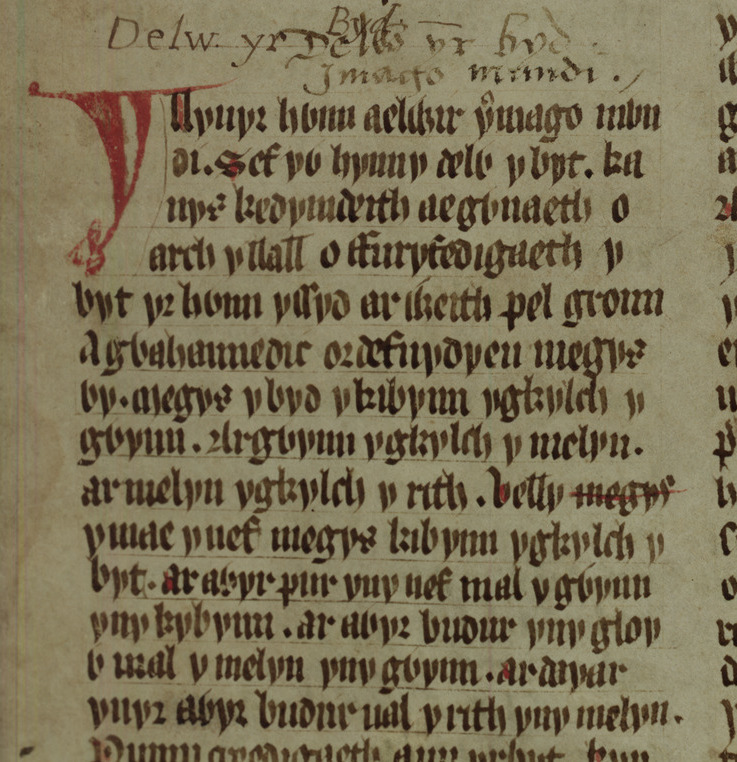 Delw yr Byd
Delw yr byd
Jmago mundi.
Llyuyr hỽnn aelwir ymago mỽn
di. Sef yỽ hynny delỽ y byt. ka
nys kedymdeith aegỽnaeth o
arch y llall o ffuryfedigaeth y
byt yr hỽnn yssyd ar weith pel gronn
A gỽahannedic o defnydyeu megys
ỽy. Megys y byd y kibynn ygkylch y
gỽynn. Ar gỽynn ygkylch y melyn.
ar melyn ygkylch y rith. Velly megys
y mae y nef megys kibynn ygkylch y
byt. ar aỽyr pur yny nef mal y gỽynn
yny kybynn. ar aỽyr budur yny gloy
ỽ mal y melyn yny gỽynn. ar dayar
ynyr aỽyr budur ual y rith yny melyn.